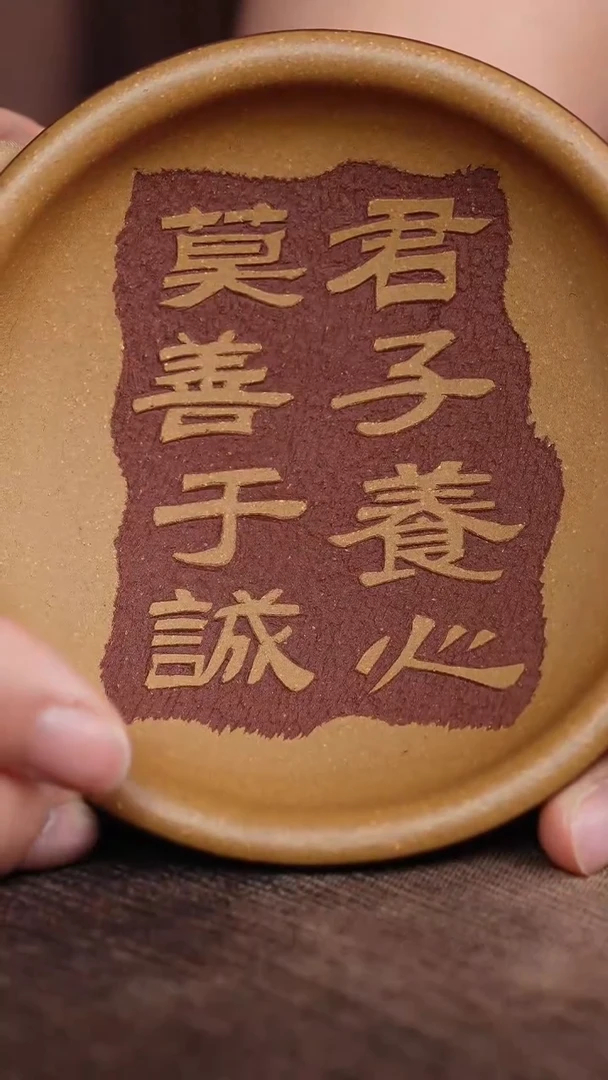 君子養心
莫善于誠